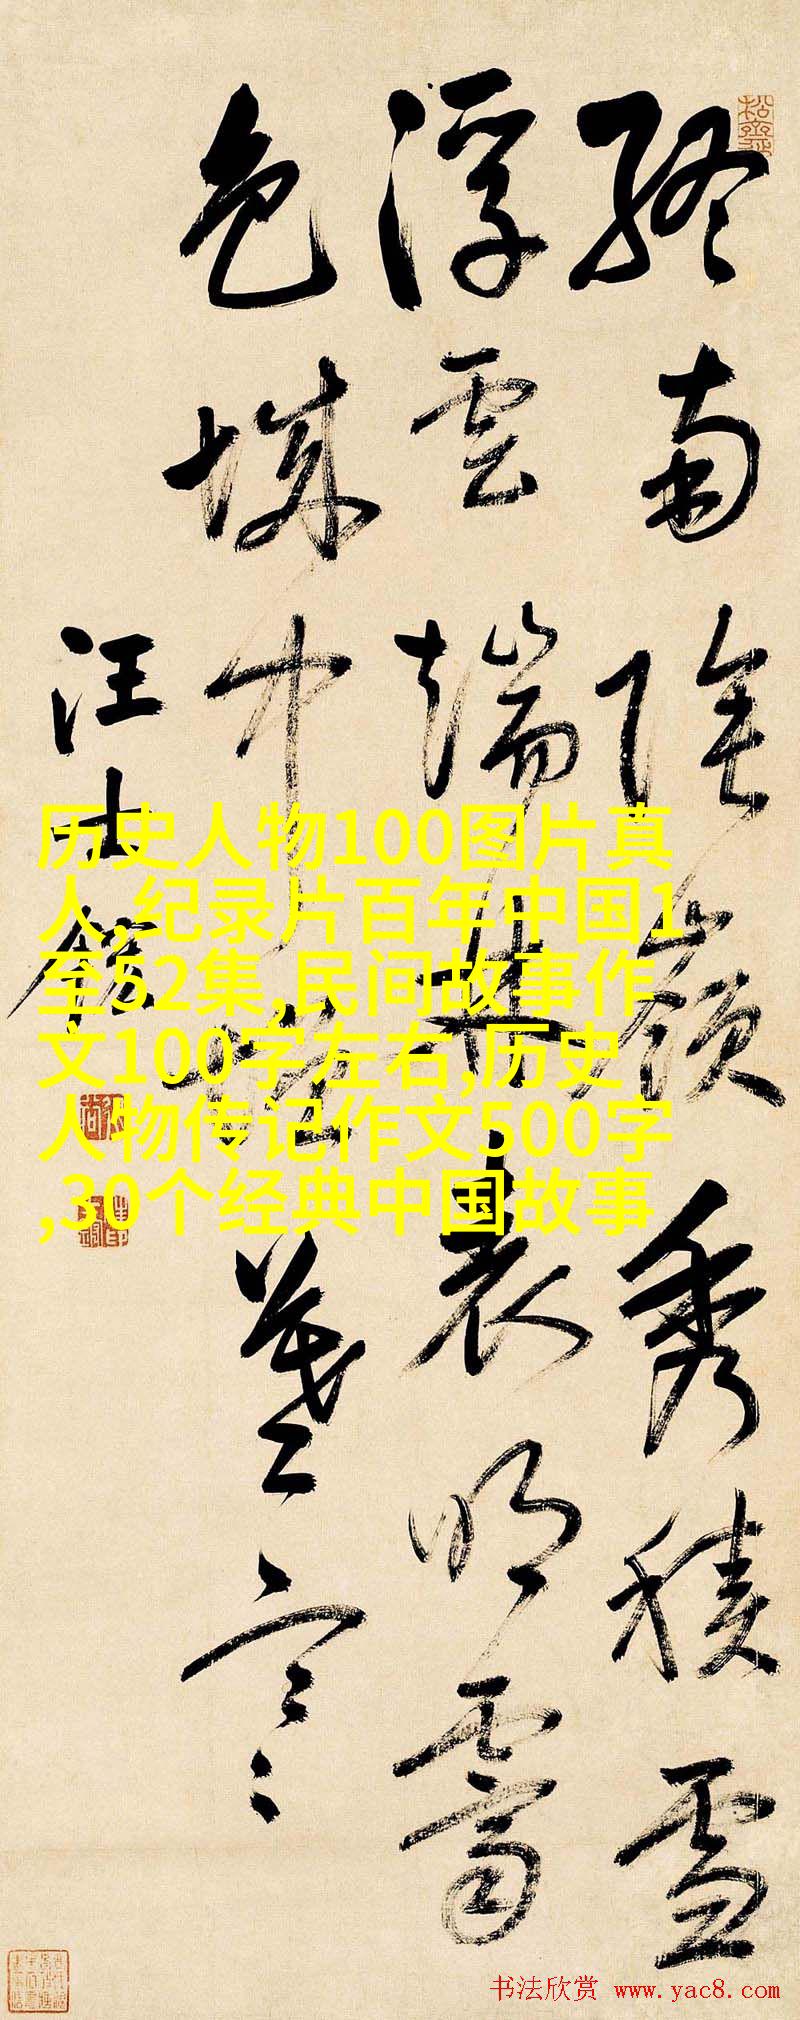 終南陰嶺秀積雪
浮雲端林表明霽
色城中增暮寒
汪士鋐
历史人物100图片真
人,纪录片百年中国1
至52集,民间故事作
文100字左右,历史
人物传记作文500字
,30个经典中国故事
书法欣赏 www.yac8.com